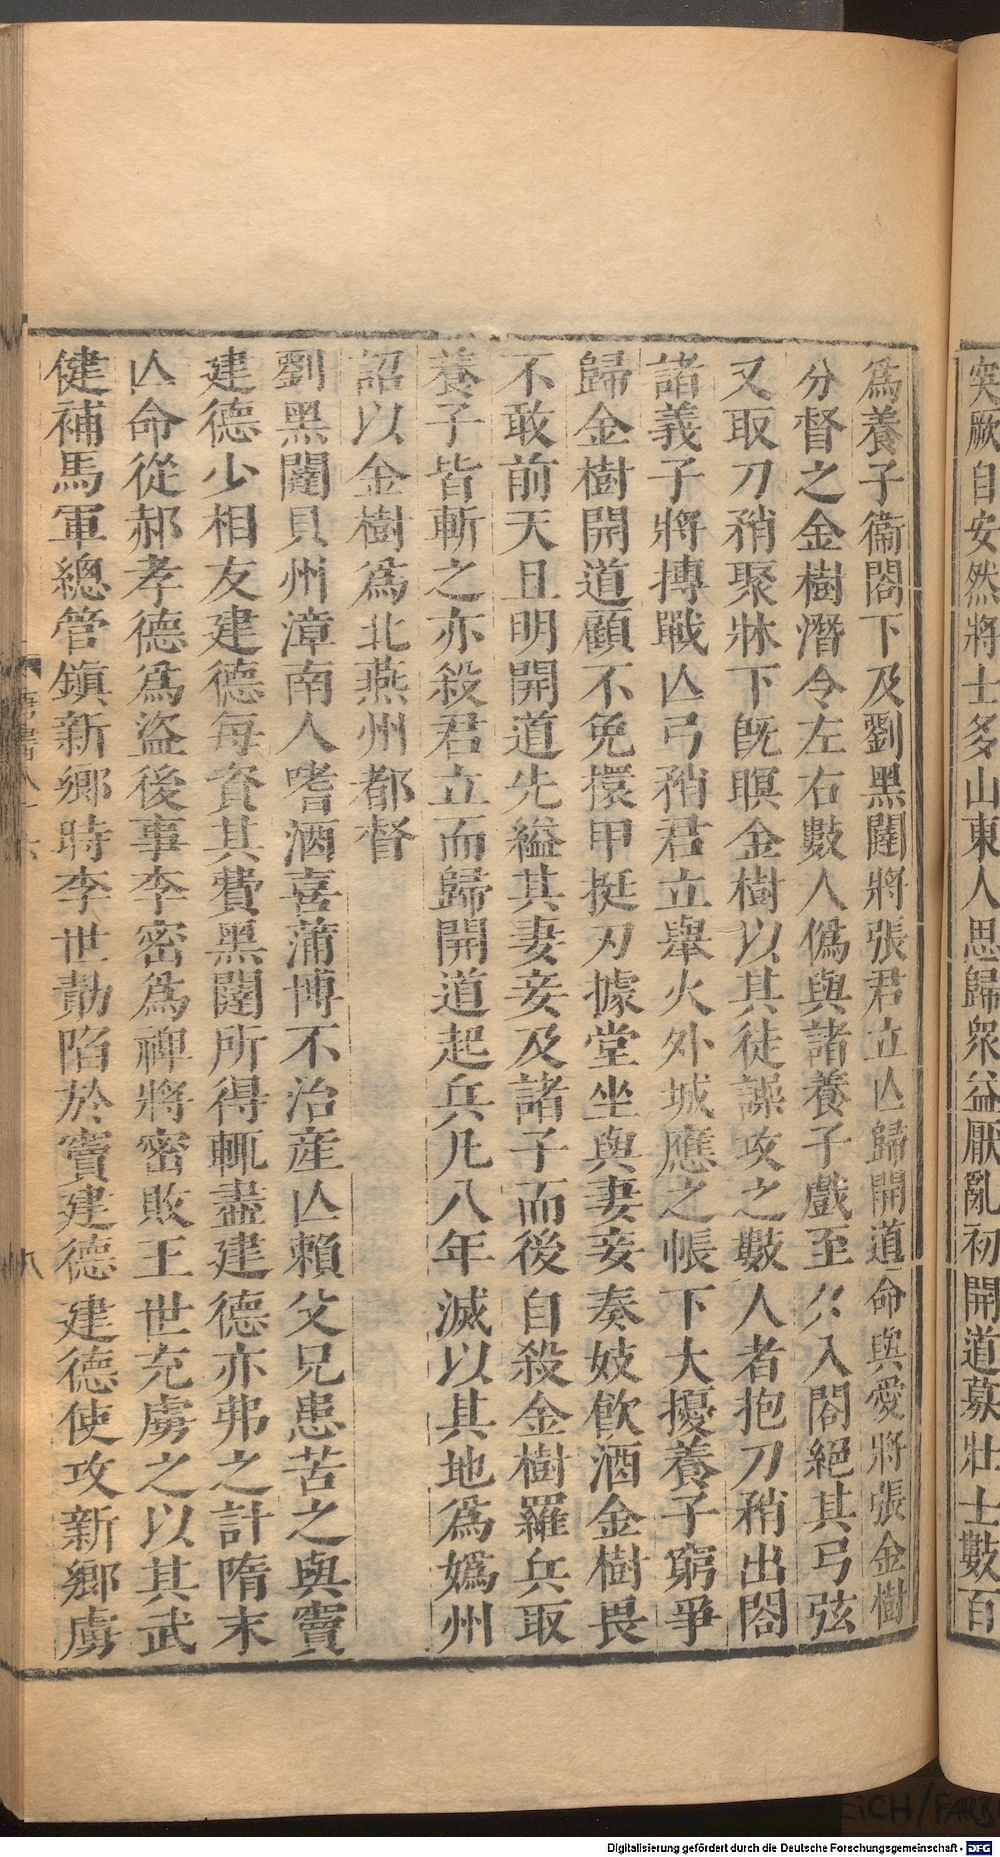 突厥自安然將士多山東人思歸衆益厭亂初開道募壯士數百
爲養子衞閤下及劉黑闥將張君立亾歸開道命與愛將張金樹
分督之金樹潛令左右數人僞與諸養子戲至夕入閤絕其弓弦
又取刀矟聚牀下旣瞑金樹以其徒譟攻之數人者抱刀矟出閤
諸義子將搏戰亾弓矟君立舉火外城應之帳下大擾養子窮爭
歸金樹開道顧不免擐甲挺刃據堂坐與妻妾奏妓飮酒金樹畏
不敢前天且明開道先縊其妻妾及諸子而後自殺金樹羅兵取
養子皆斬之亦殺君立而歸開道起兵凡八年滅以其地爲嬀州
詔以金樹爲北燕州都督
劉黑闥貝州漳南人嗜酒喜蒲博不治産亾賴父兄患苦之與竇
建德少相友建德每資其費黑闥所得輒盡建德亦弗之計隋末
亾命從郝孝德爲盜後事李密爲裨將密敗王世充虜之以其武
健補馬軍總管鎭新鄉時李世勣陷於竇建德建德使攻新鄉虜
唐書八十六
八
Digitalisierung gefördert durch die Deutsche Forschungsgemeinschaft - DFG